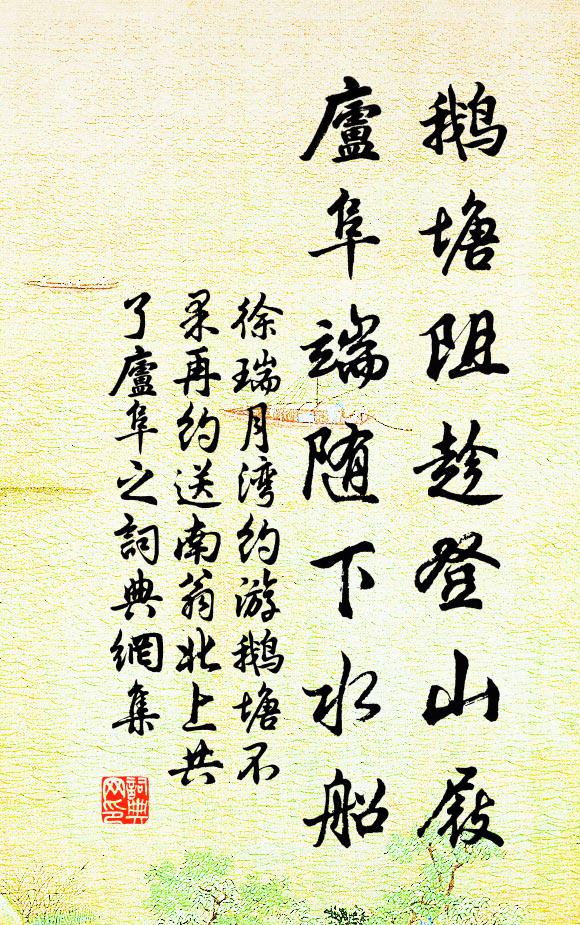 鹅塘阻趁登山屐
廬阜端随下水船
徐瑞月湾约游鹅塘不
果再约送南翁北上共
了廬阜之詞典網集
詞典网印